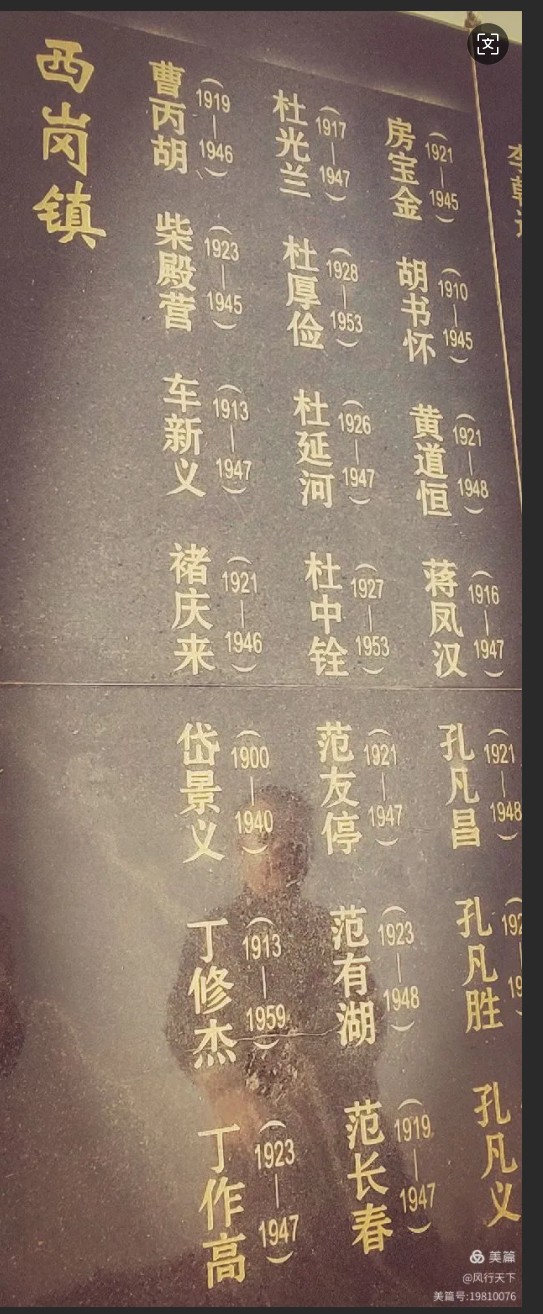 西岗镇
曹丙胡（1919—1946）
柴殿营（1923—1945）
车新义（1913—1947）
褚庆来（1921—1946）
岱景义（1900—1940）
丁修杰（1913—1959）
丁作高（1923—1947）
杜光兰（1917—1947）
杜厚俭（1928—1953）
杜延河（1926—1947）
杜中铨（1927—1953）
范友停（1921—1947）
范有湖（1923—1948）
范长春（1919—1947）
房宝金（1921—1945）
胡书怀（1910—1945）
黄道恒（1921—1948）
蒋凤汉（1916—1947）
孔凡昌（1921—1948
孔凡胜
孔凡义
美篇
@风行天下
美篇号:19810076